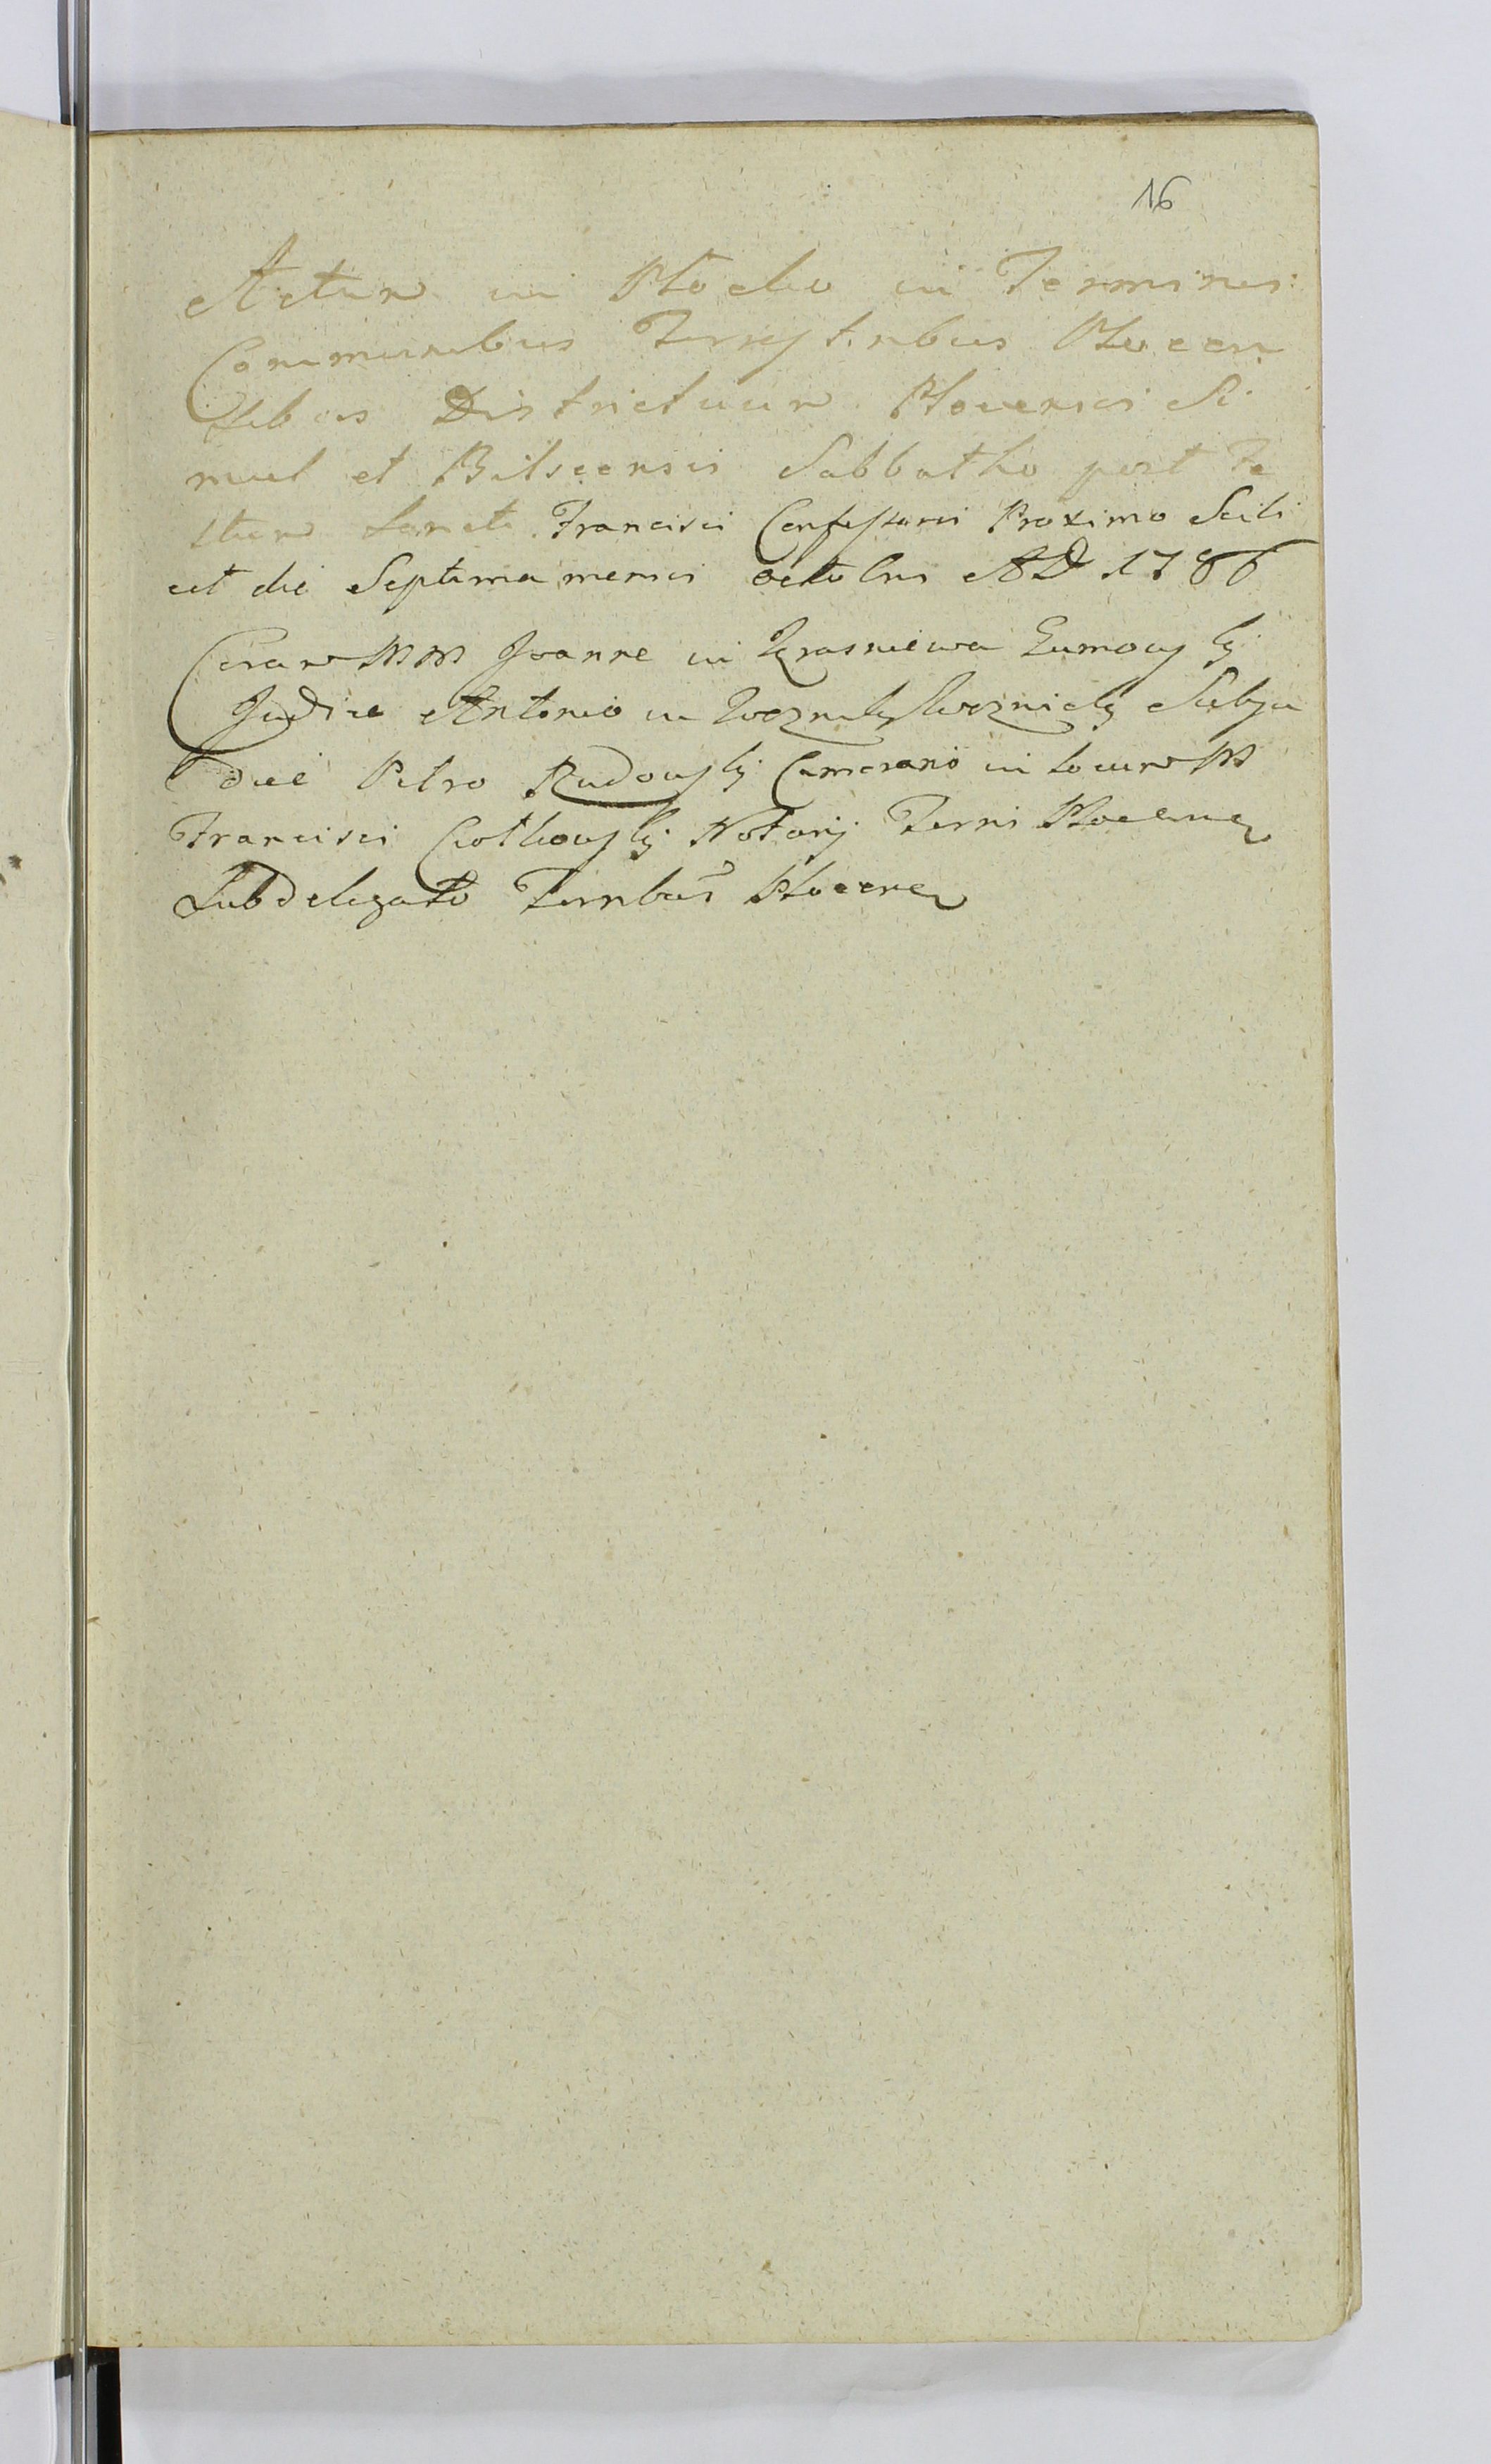 16
Actum in Płocko in Terminis
Communibus Terrestribus Płocen
sibus Districtuum Plocensis Si
mul et Bilscensis Sabbatho post Fe
stum Sancti Francisci Confessoris Proximo Scili
cet die Septima mensis octobris AD 1786
Coram MM Joanne in Krasniewa Zumowsky
Judice Antonio in Wozniky Woznicky Subju
dice Petro Rudowsky Camerario in Locum M
Francisci Ciotkowsky Notarij Terris Plocensis
Subdelegato Terribus Plocens